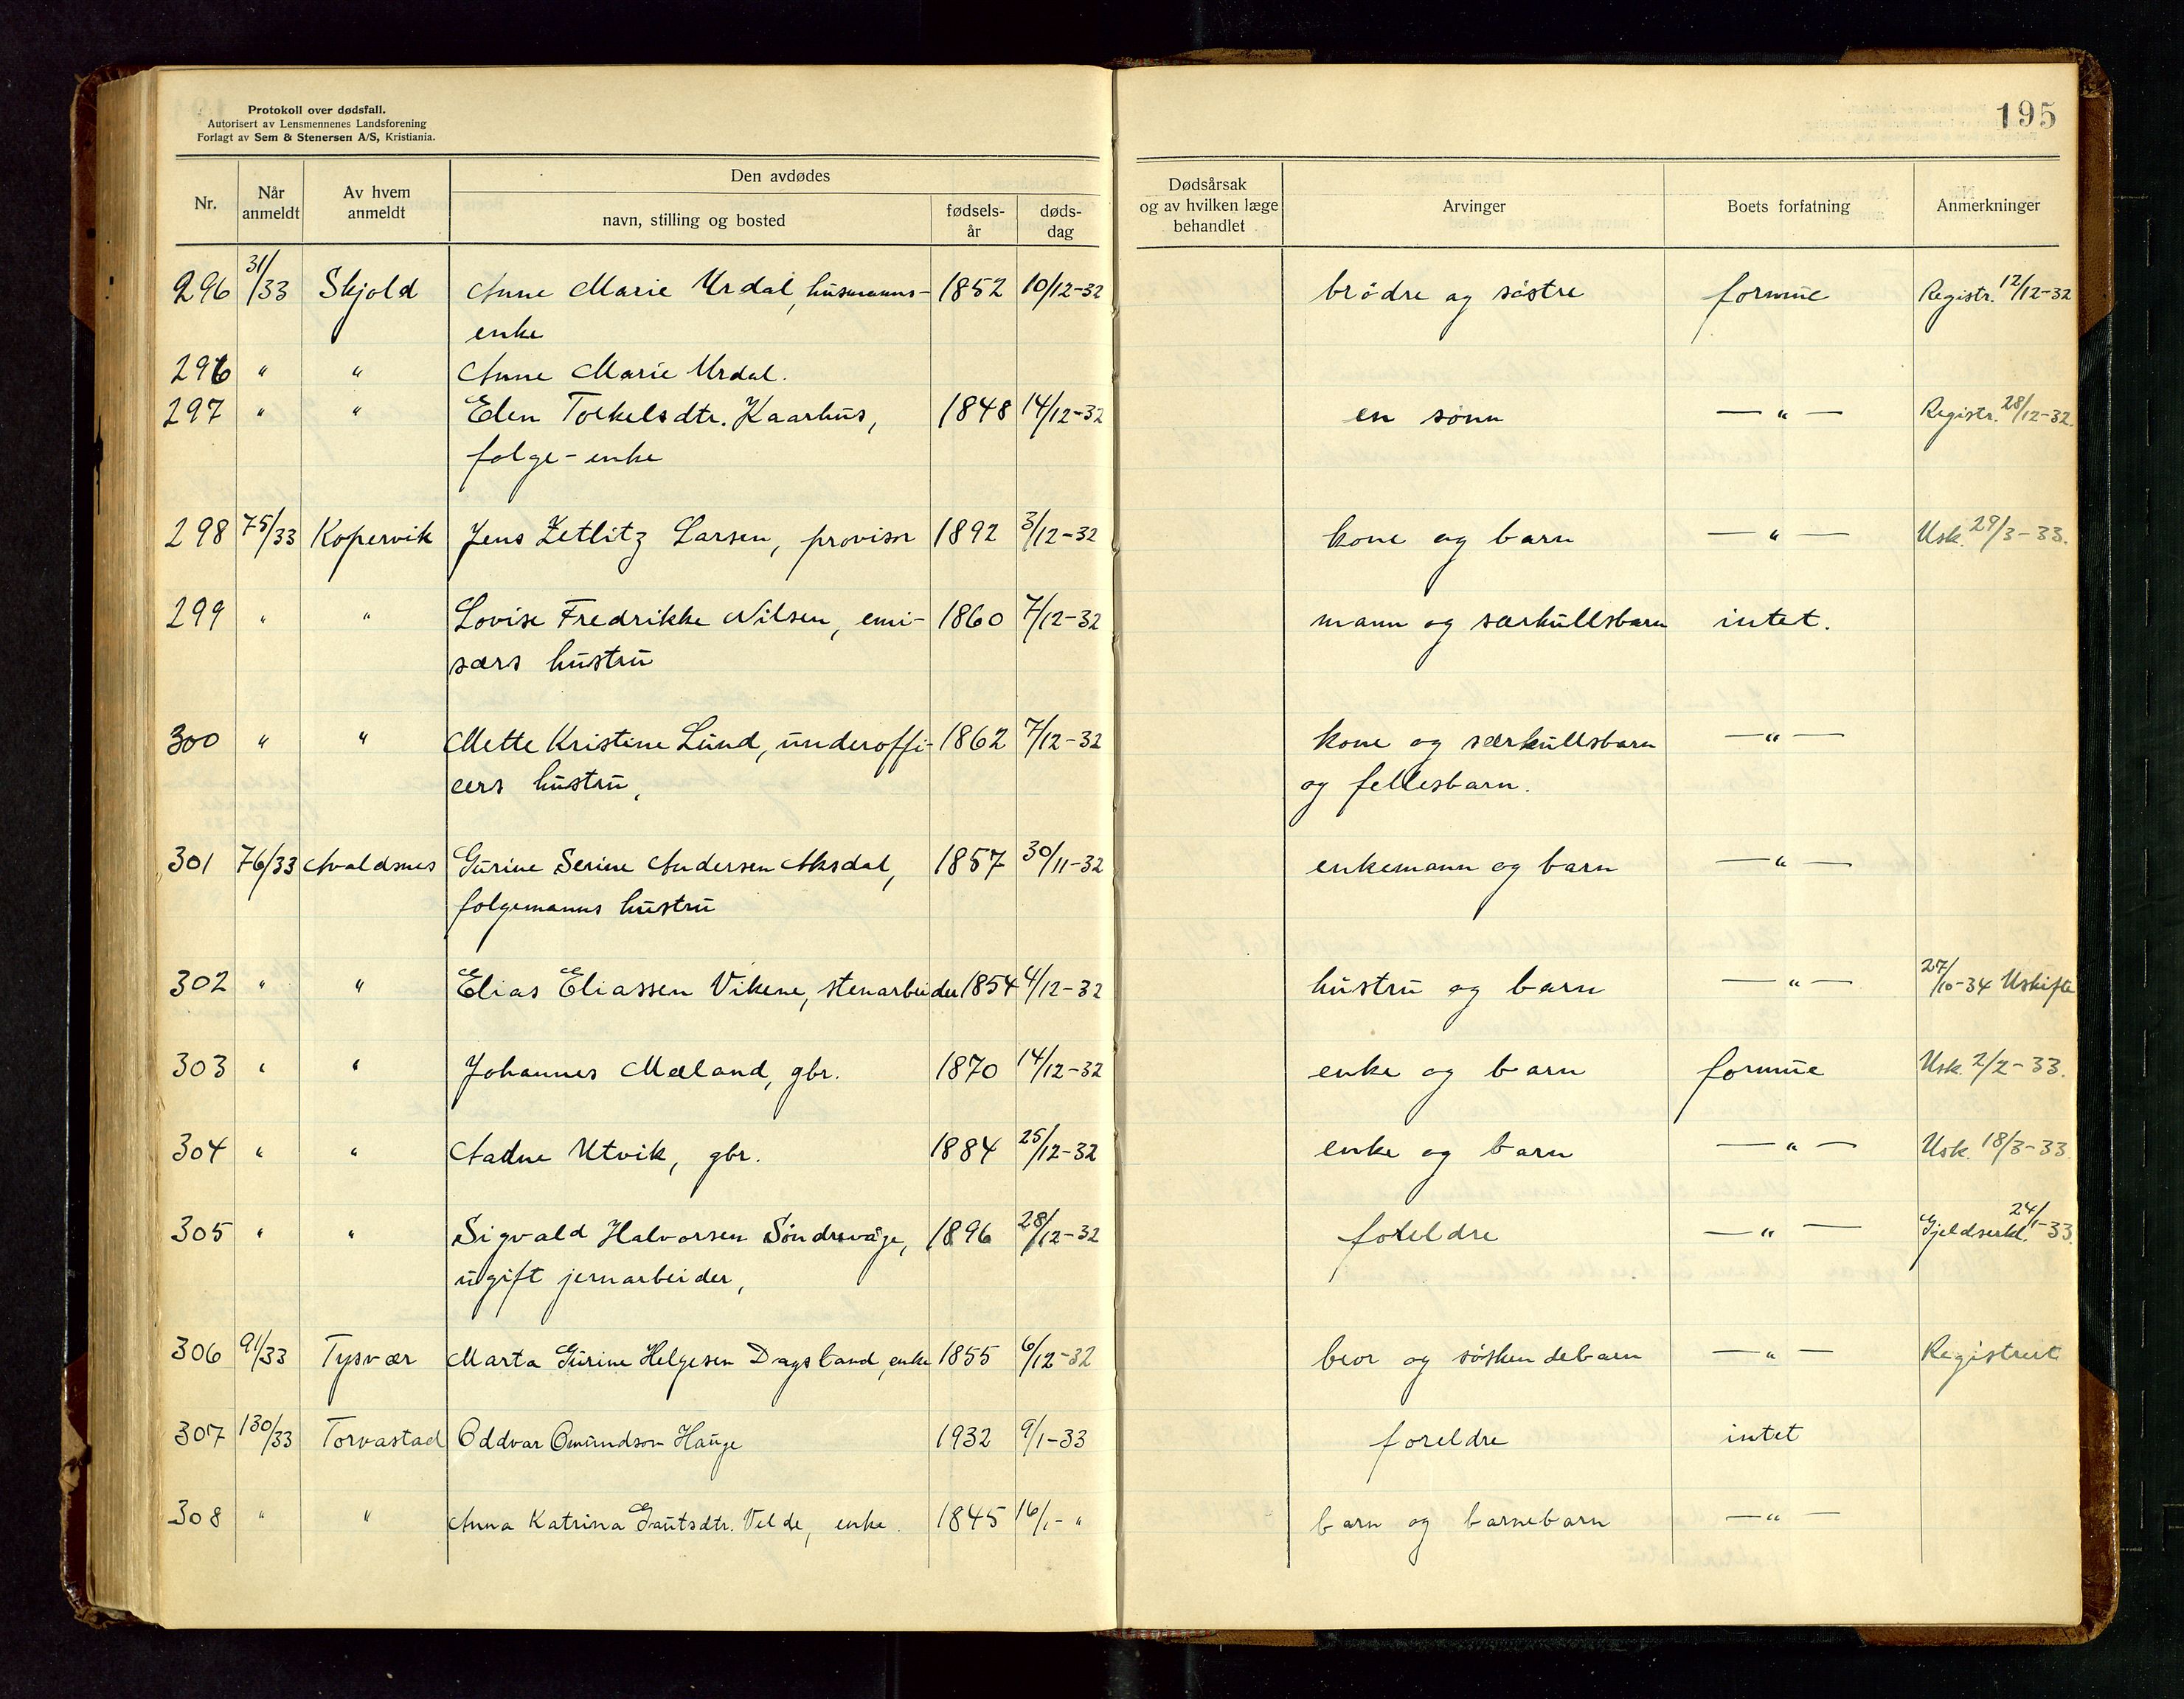 Protokoll over dødsfall.
Autorisert av Lensmennenes Landsforening
Forlagt av Sem & Stenersen A/S, Kristiania.
195
Nr. Når anmeldt Av hvem anmeldt Den avdødes navn, stilling og bosted fødsels-år døds-dag Dødsårsak og av hvilken læge behandlet Arvinger Boets forfatning Anmerkninger
296 31/33 Skjold Anne Marie Urdal, husmanns- 1852 10/12-32 brödre og söstre formue Registr. 12/12-32
enke
296 " " Anne Marie Urdal.
297 " " Elen Torkelsdtr. Kaarhus, 1848 14/12-32 en sönn — " — Registr. 28/12-32.
folge-enke
298 75/33 Kopervik Jens Zetlitz Larsen, provisor 1892 3/12-32 kone og barn — " — Usk. 29/3-33.
299 " " Lovise Fredrikke Nilsen, emi- 1860 7/12-32 mann og særkullsbarn intet.
særs hustru
300 " " Mette Kristine Lund, underoffi- 1862 7/12-32 kone og særkullsbarn — " —
cers hustru, og fellesbarn.
301 76/33 Avaldsnes Gurine Serine Andersen Aksdal, 1857 30/11-32 enkemann og barn — " —
folgemanns hustru
302 " " Elias Eliassen Vikene, stenarbeider 1854 4/12-32 hustru og barn — " — 27/10-34 Uskifte
303 " " Johannes Mæland, gbr. 1870 14/12-32 enke og barn formue Usk. 2/2-33.
304 " " Aadne Utvik, gbr. 1884 25/12-32 enke og barn — " — Usk. 18/3-33.
305 " " Sigvald Halvorsen Söndrevåge, 1896 28/12-32 foreldre — " — Gjeldserkl. 24/1-33.
ugift jernarbeider,
306 91/33 Tysvær Marta Gurine Helgesen Dagsland, enke 1855 6/12-32 bror og söskendebarn — " — Registrert
307 130/33 Torvastad Oddvar Omundson Hauge 1932 9/1-33 foreldre intet
308 " " Anna Katrina Gautsdtr. Velde, enke. 1845 16/1- " barn og barnebarn — " —